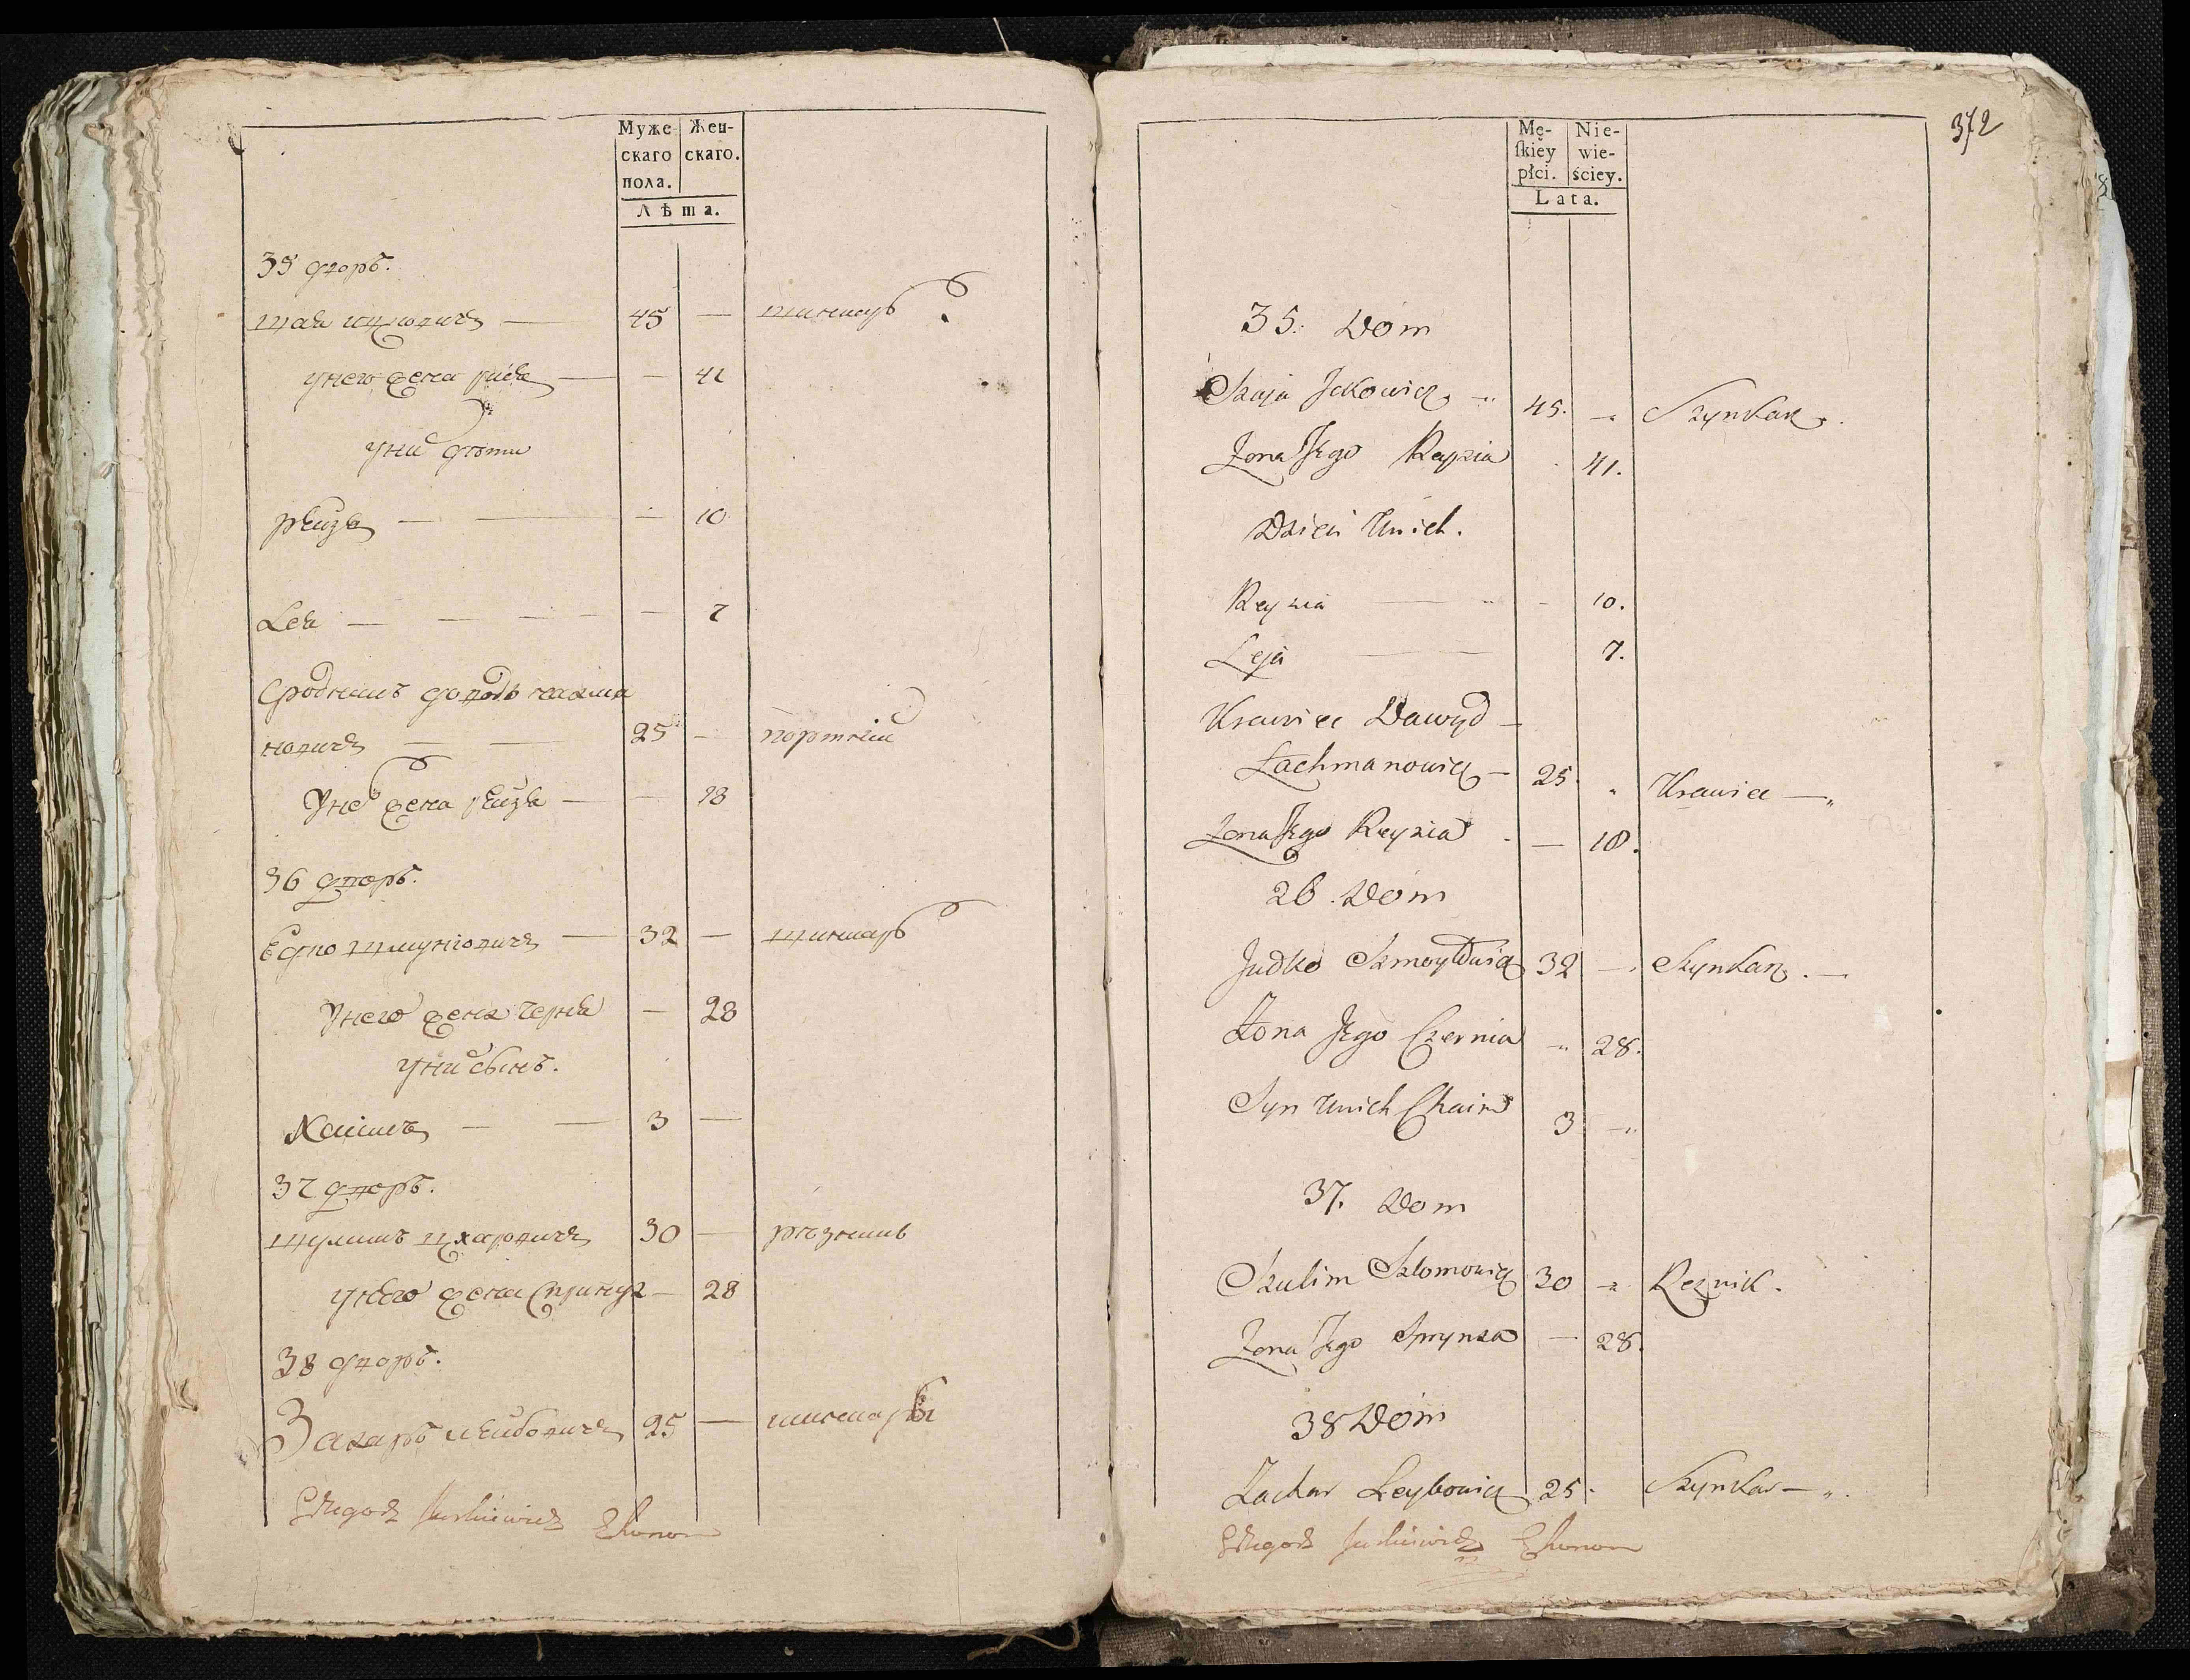 Муже-
скаго
пола.
Жен-
скаго.
Лѣта.
35 дворъ.
шая ицковичъ — 45 — шинкарь
унего жена рися — — 41
уних дѣти
рѣйзя — — — 10
Лея — — — — — 7
Сродникъ довыдъ нахма
новичъ — — 25 — портній
Унего жена рѣйзя — — 18
36 дворъ.
Юдко — 32 — шинкарь
Унего жена черня — 28
уних сынъ.
Хаимъ — — 3 —
37 дворъ.
шулимъ 30 — рѣзникъ
унего жена спринца — 28
38 дворъ.
Захаръ лейбовичъ 25 — шинкарь
Ekonom
372
Mę-
ſkiey
płci.
Nie-
wie-
ściey.
Lata.
35. Dóm
Szaja Jckowicz 45. Szynkarz.
Zona Jego Reyzia 41.
Dzieci Unich.
Reyzia — 10.
Leja — — 7.
Krawiec Dawyd —
Łachmanowicz — 25. Krawiec —
Zona Jego Reyzia — 18.
26. Dóm
Judko 32 — Szynkarz. —
Zona Jego Czernia 28.
Syn Unich Chaim 3 —
37. Dom
Szulim Szlomowicz 30 Reznik.
Zona Jego Sprynza — 28.
38 Dóm
Zachar Leybowicz 25. Szynkar —
Ekonom